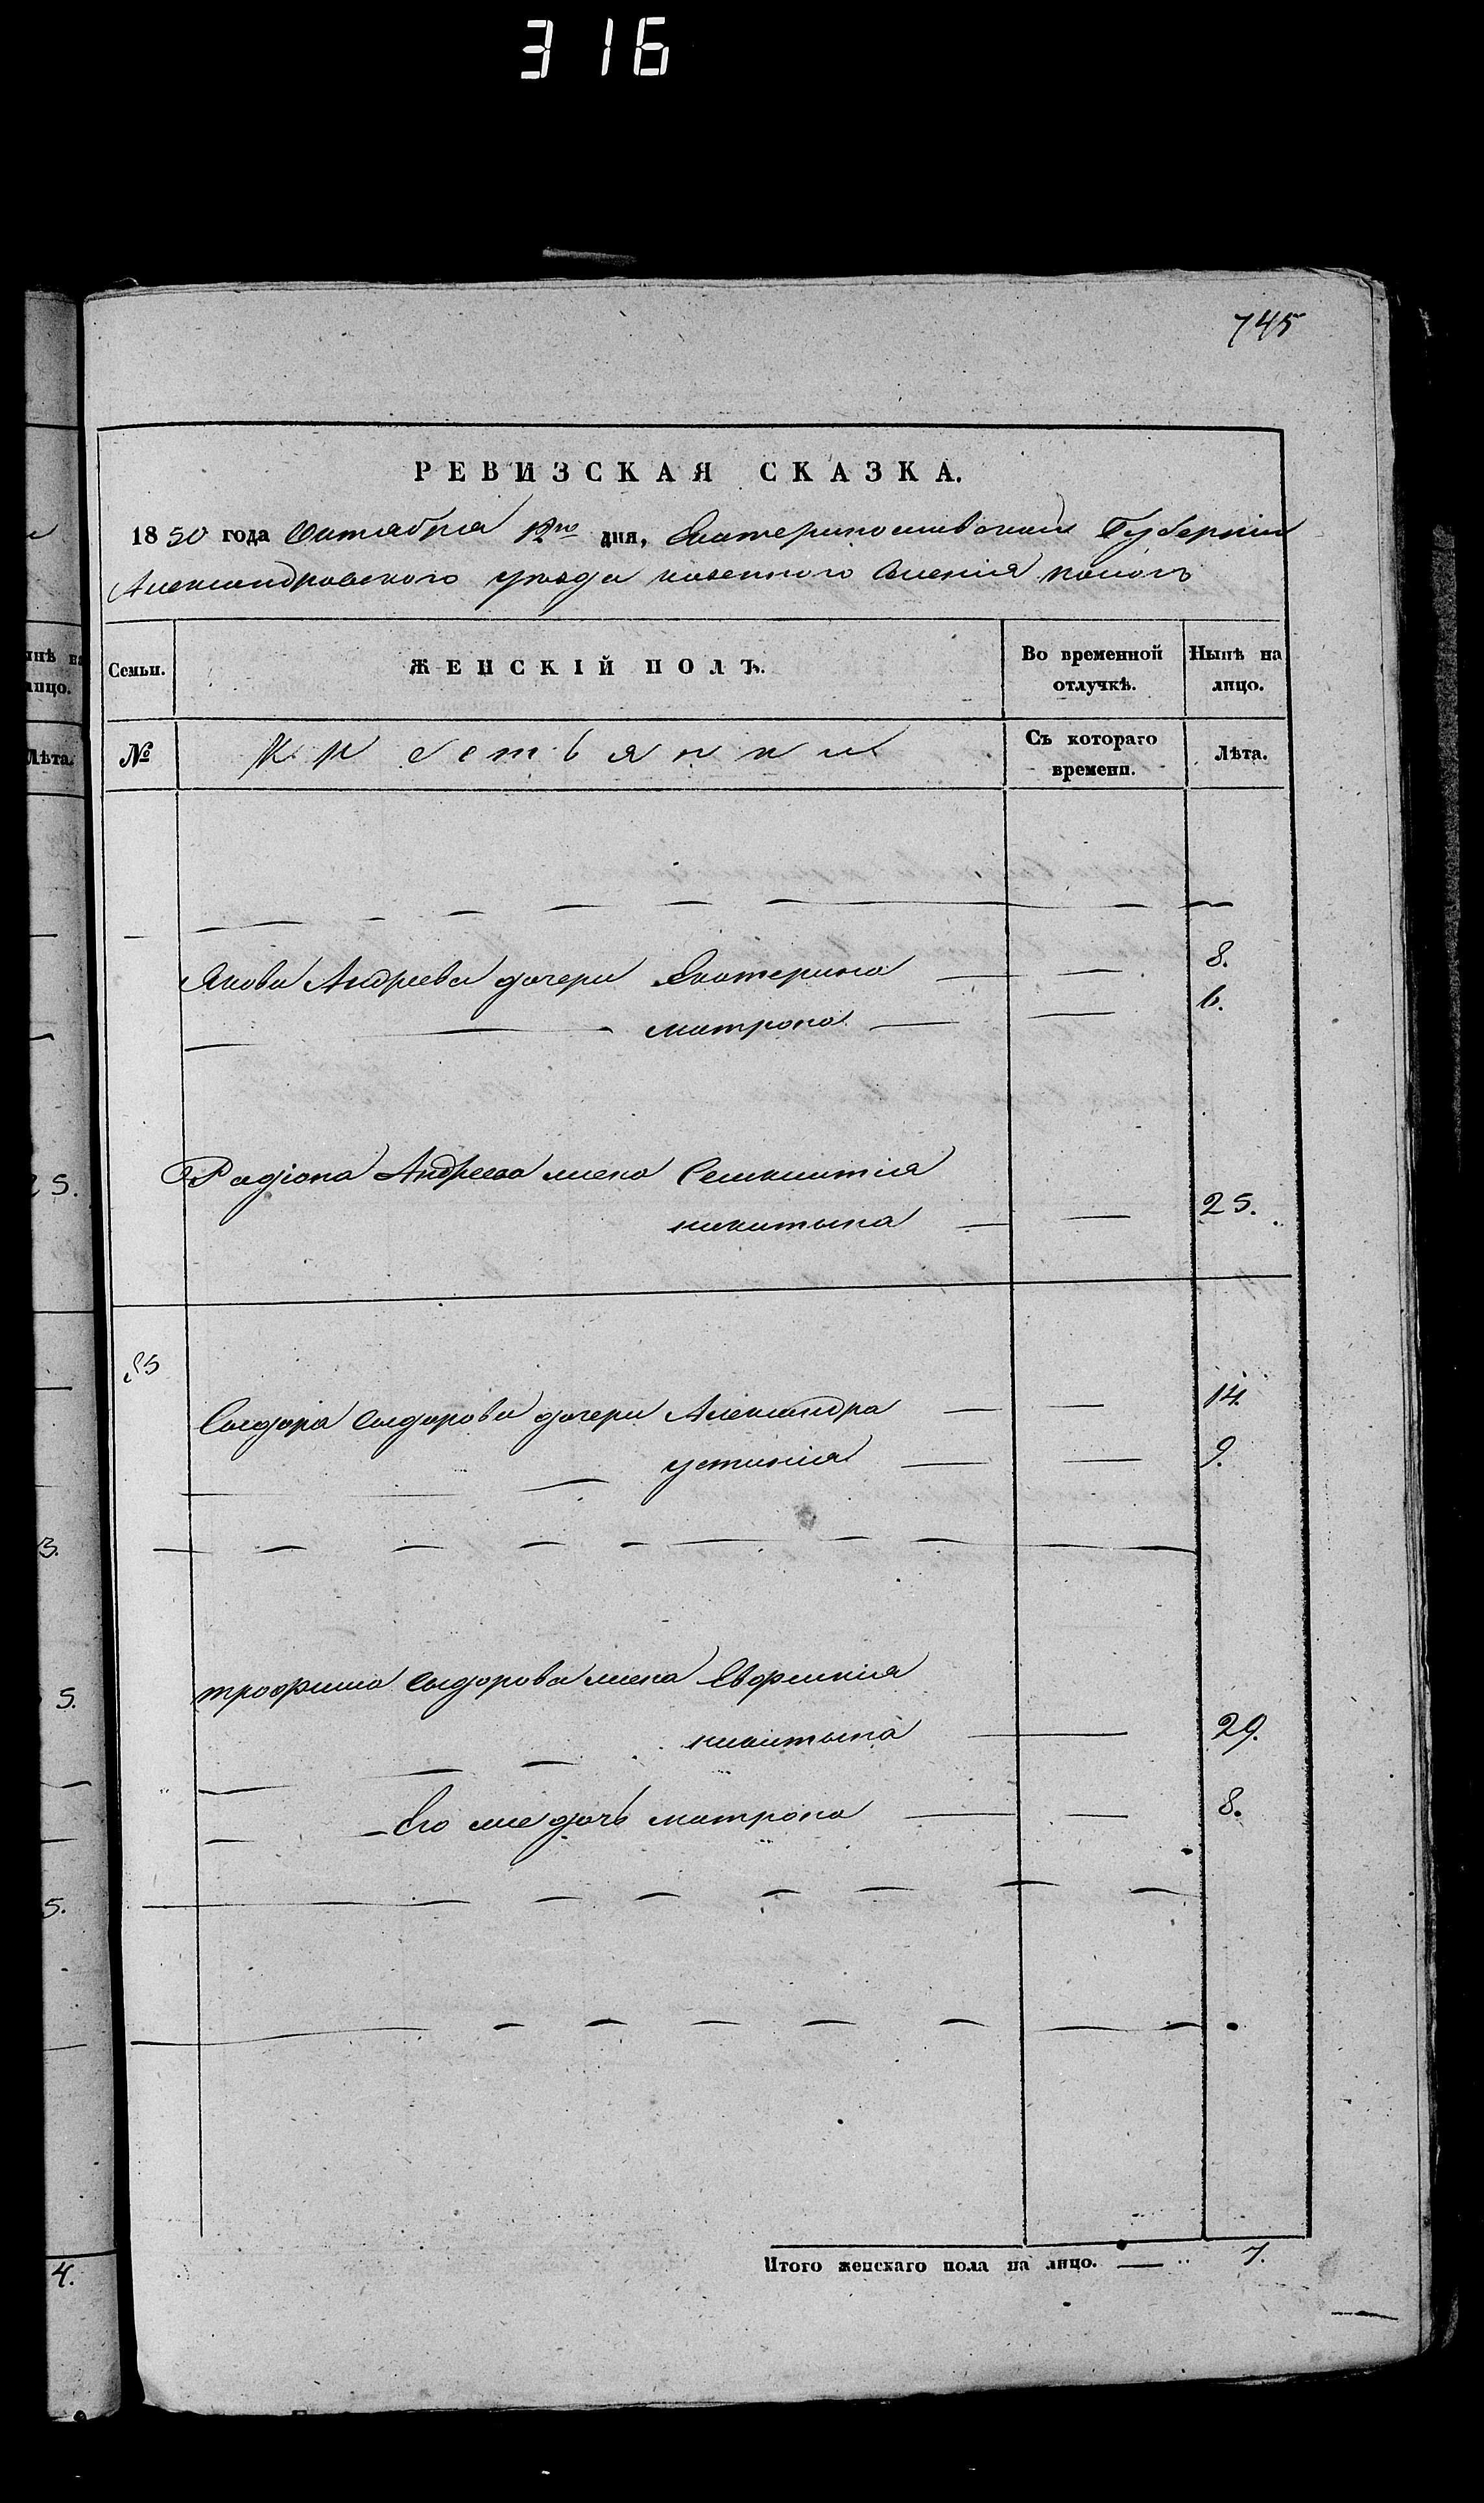 316
745
РЕВИЗСКАЯ СКАЗКА.
1850 года Октября 12го дня, Екатеринославской Губернии
Александровского уезда казенного селения конст
Семьи. ЖЕНСКІЙ ПОЛЪ. Во временной отлучкѣ. Нынѣ на лицо.
№ Крестьянки Съ котораго времени. Лѣта.
Якова Андреева дочери Екатерина — — 8.
— — матрона — — 6.
Радіона Андреева жена
никитына — — 25.
85
Сидора Сидорова дочери Александра — — 14.
— — устинія — — 9.
трофима Сидорова жена Евфимія
никитына — 29.
Его же дочь матрона — — 8.
Итого женскаго пола на лицо. — 7.
нѣ на
лицо.
Лѣта.
25.
3.
5.
5.
4.